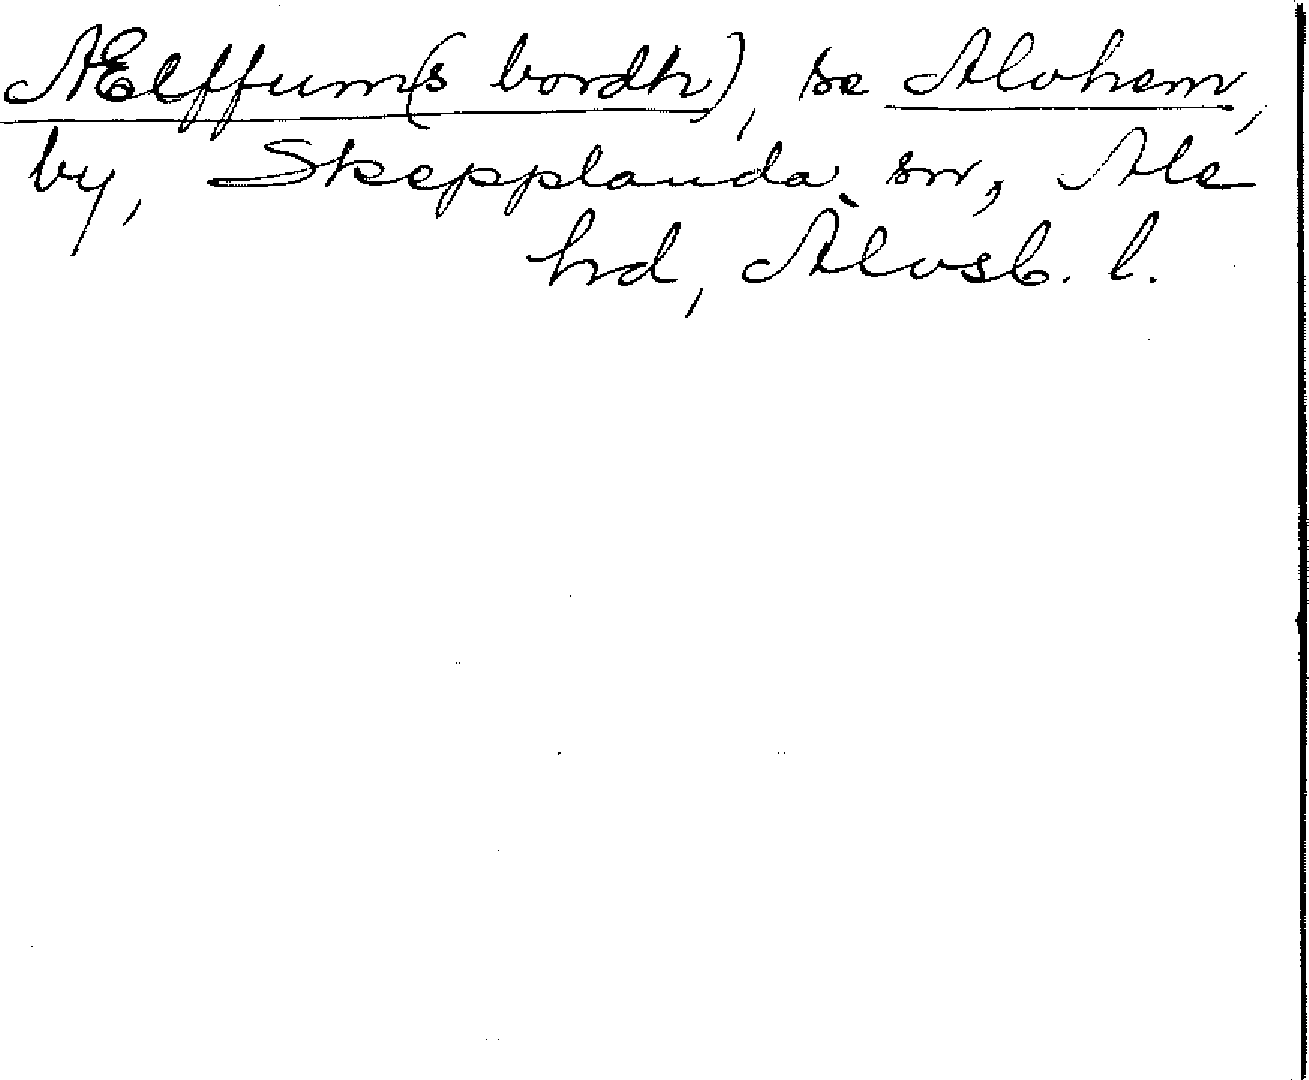 Ælffum(s bordh), se Alvhem,
by, Skepplanda sn, Ale
hd, Älvsb. l.